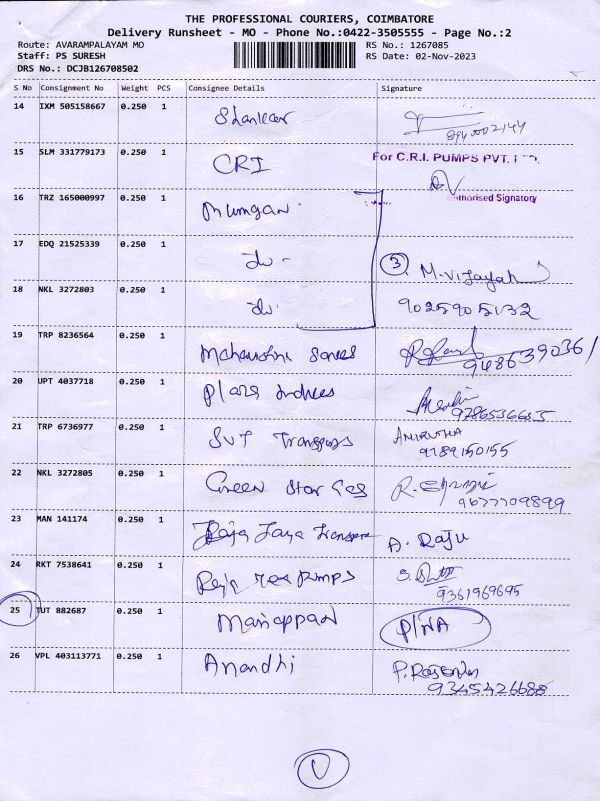 THE PROFESSIONAL COURIERS, COIMBATORE
Delivery Runsheet - MO - Phone No.:0422-3505555 - Page No.:2
Route: AVARAMPALAYAM MO RS No.: 1267085
Staff: PS SURESH RS Date: 02-Nov-2023
DRS No.: DCJB126708502
S No Consignment No Weight PCS Consignee Details Signature
14 IXM 505158667 0.250 1 Shankar
8940002144
15 SLM 331779173 0.250 1 CRI For C.R.I. PUMPS PVT.
Authorised Signatory
16 TRZ 165000997 0.250 1 Murugan
17 EDQ 21525339 0.250 1 do - 3 M. Vijayah
18 NKL 3272803 0.250 1 do - 9025905132
19 TRP 8236564 0.250 1
9486390361
20 UPT 4037718 0.250 1
21 TRP 6736977 0.250 1 SVT Transports ANIRUTHA
9789150155
22 NKL 3272805 0.250 1 Green Star Gas R.
9677709899
23 MAN 141174 0.250 1 Raja Jaya Transport A. RAJU
24 RKT 7538641 0.250 1 Pumps S.
9361969695
25 TUT 882687 0.250 1 Mariappan P/NA
26 VPL 403113771 0.250 1 Anandhi
9345426688